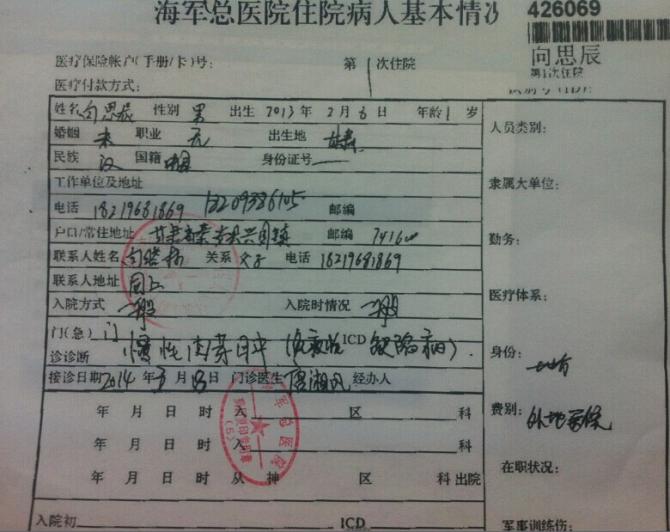 海军总医院住院病人基本情况
426069
向思辰
第1次住院
医疗保险帐户(手册/卡)号: 第1次住院
医疗付款方式:
姓名 向思辰 性别 男 出生 2013年2月6日 年龄1岁
婚姻 未 职业 无 出生地 甘肃
民族 汉 国籍 中国 身份证号
工作单位及地址
电话 18219681869 邮编
户口/常住地址 甘肃 邮编
联系人姓名 关系 父子 电话 18219681869
联系人地址 同上
入院方式 一般 入院时情况 一般
门(急)门
诊诊断 慢性肉芽肿(免疫性 ICD 缺陷病).
接诊日期2014年3月13日 门诊医生 经办人
年 月 日 时 入 区 科
年 月 日 时 入 科
年 月 日 时 从 神 区 科 出院
入院初 ICD
人员类别:
隶属大单位:
勤务:
医疗体系:
身份:
费别: 外地医保
在职状况:
军事训练伤:
军总医院